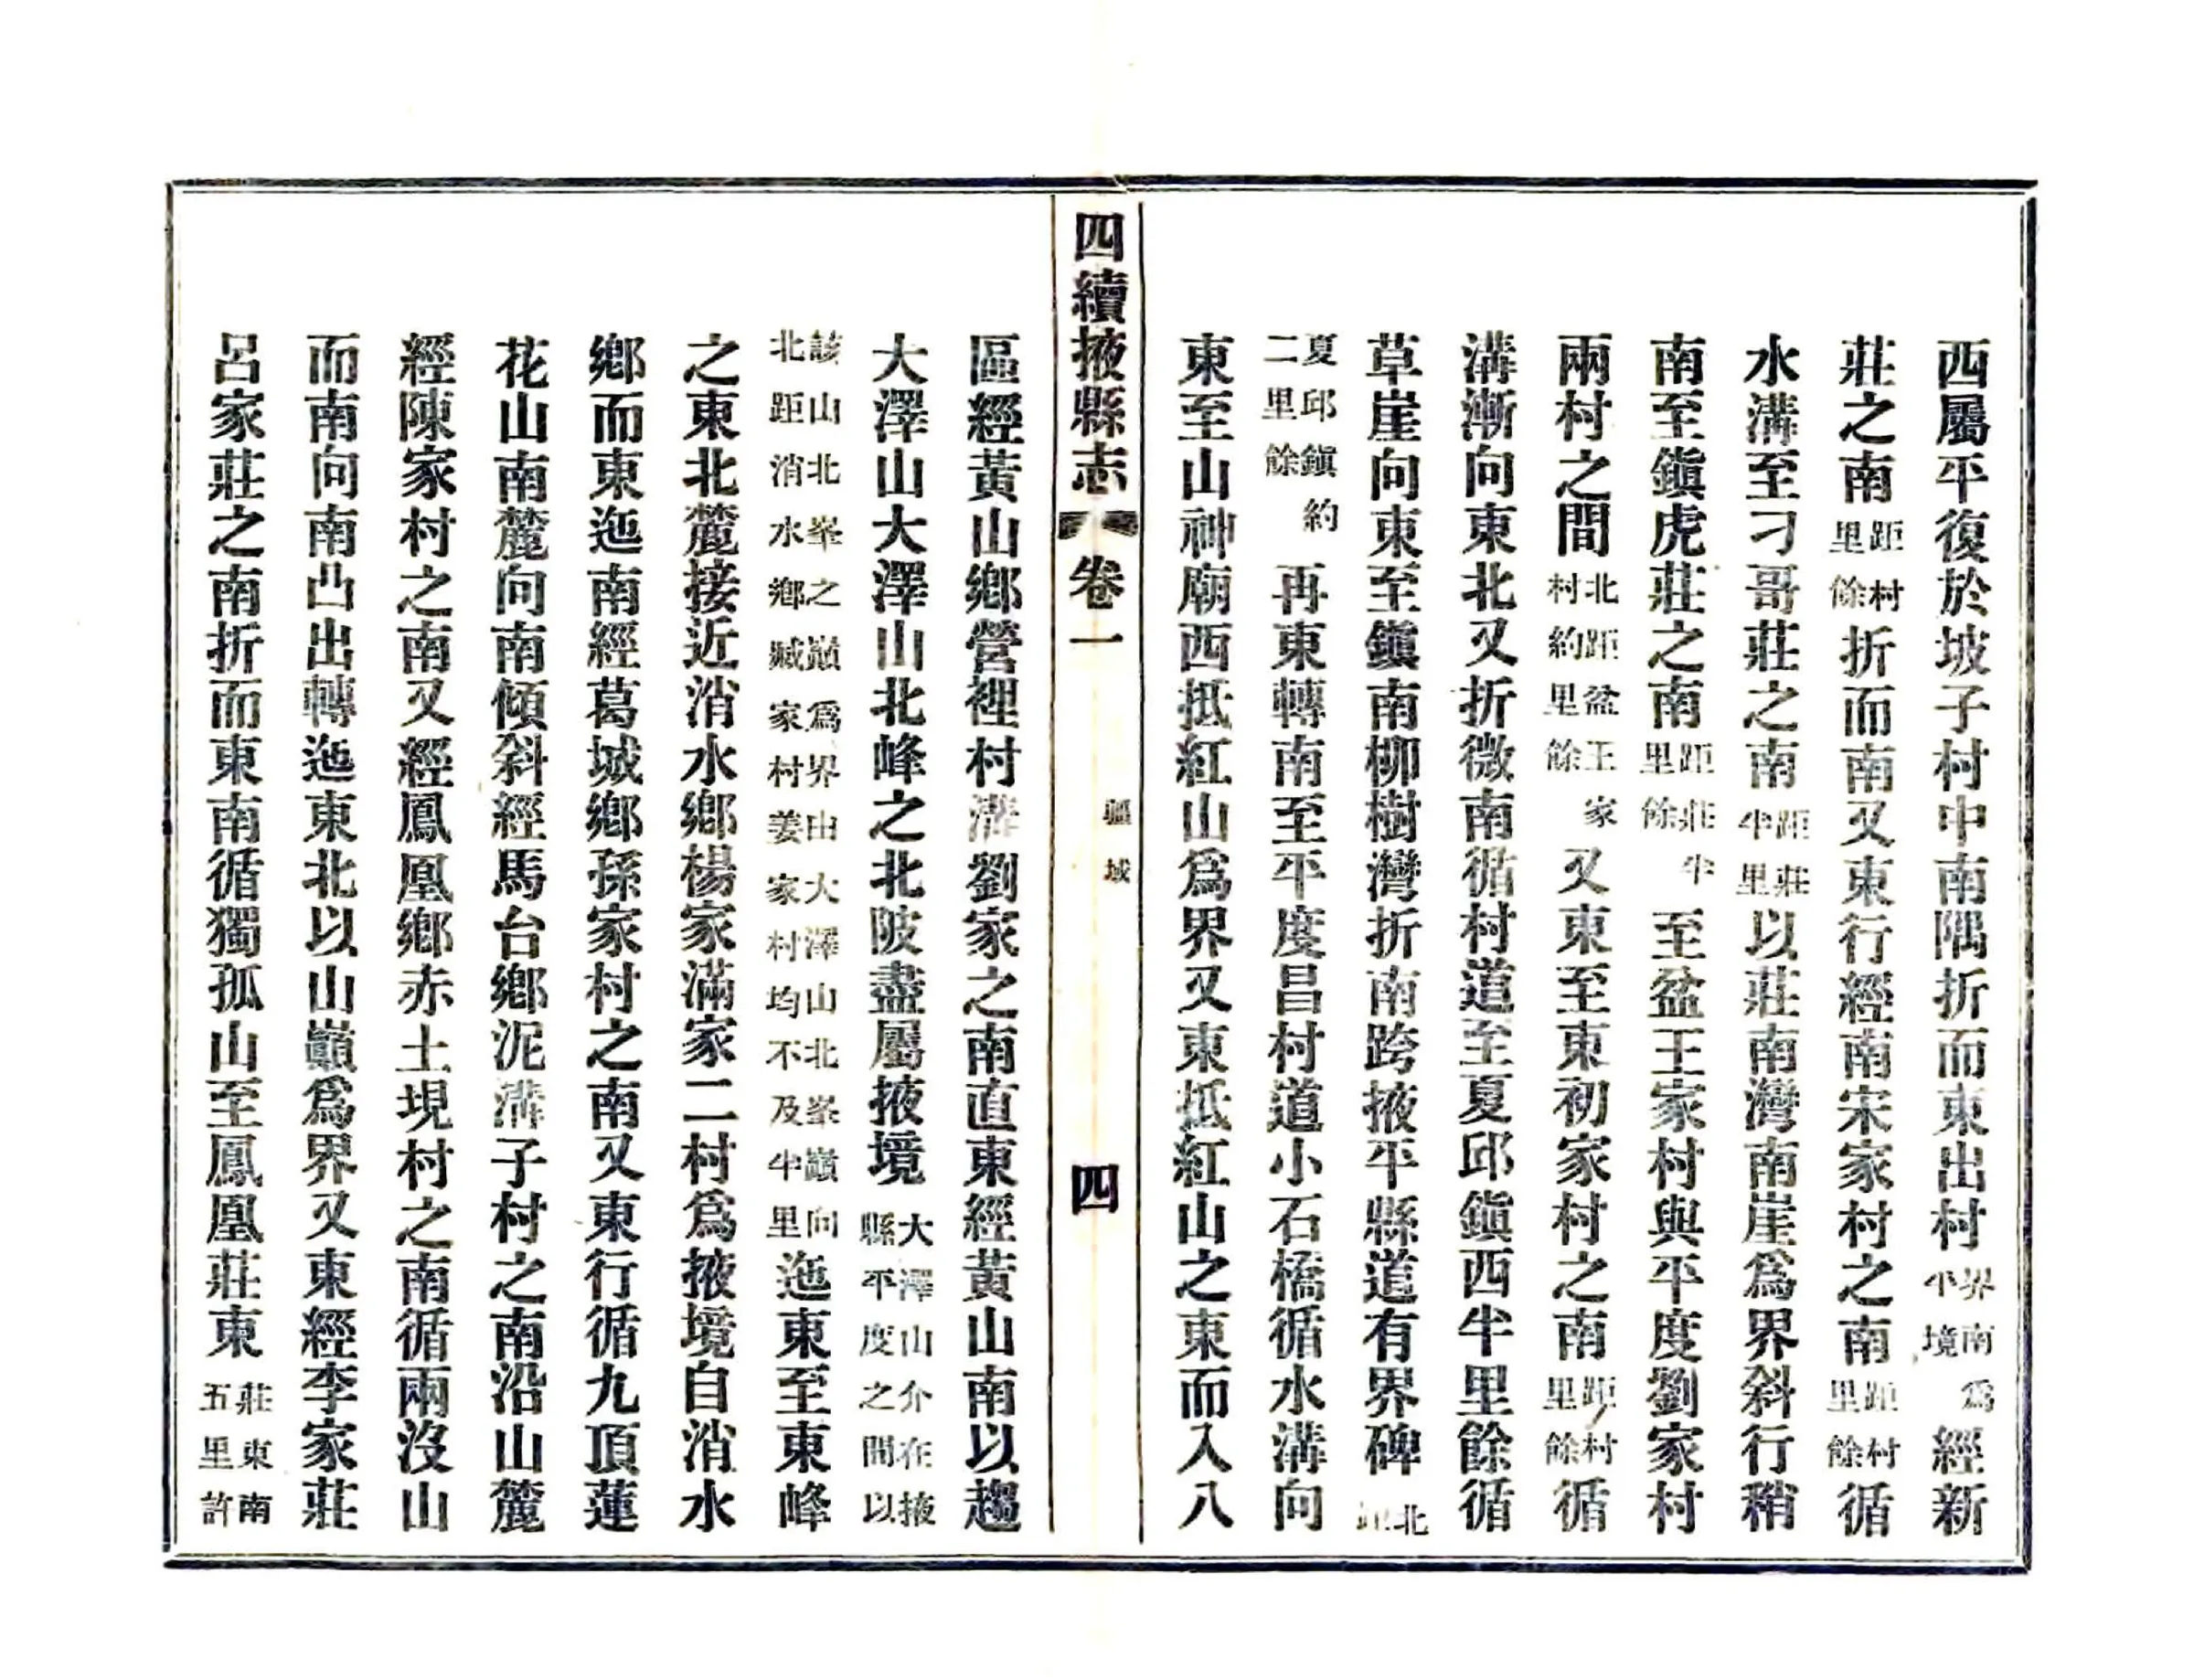 西屬平復於坡子村中南隅折而東出村界南爲平境經新
莊之南距村里餘折而南又東行經南宋家村之南距村里餘循
水溝至刁哥莊之南距莊半里以莊南灣南崖爲界斜行稍
南至鎭虎莊之南距莊半里餘至盆王家村與平度劉家村
兩村之間北距盆王家村約里餘又東至東初家村之南距村里餘循
溝漸向東北又折微南循村道至夏邱鎭西半里餘循
草崖向東至鎭南柳樹灣折南跨掖平縣道有界碑北距
夏邱鎭約二里餘再東轉南至平度昌村道小石橋循水溝向
東至山神廟西抵紅山爲界又東抵紅山之東而入八
四續掖縣志 卷一 疆域 四
區經黃山鄉營裡村溝劉家之南直東經黃山南以趨
大澤山大澤山北峰之北陂盡屬掖境大澤山介在掖縣平度之間以
該山北峯之巔爲界由大澤山北峯巔向北距消水鄉臧家村姜家村均不及半里迤東至東峰
之東北麓接近消水鄉楊家滿家二村爲掖境自消水
鄉而東迤南經葛城鄉孫家村之南又東行循九頂蓮
花山南麓向南傾斜經馬台鄉泥溝子村之南沿山麓
經陳家村之南又經鳳凰鄉赤土垷村之南循兩沒山
而南向南凸出轉迤東北以山巔爲界又東經李家莊
呂家莊之南折而東南循獨孤山至鳳凰莊東莊東南五里許